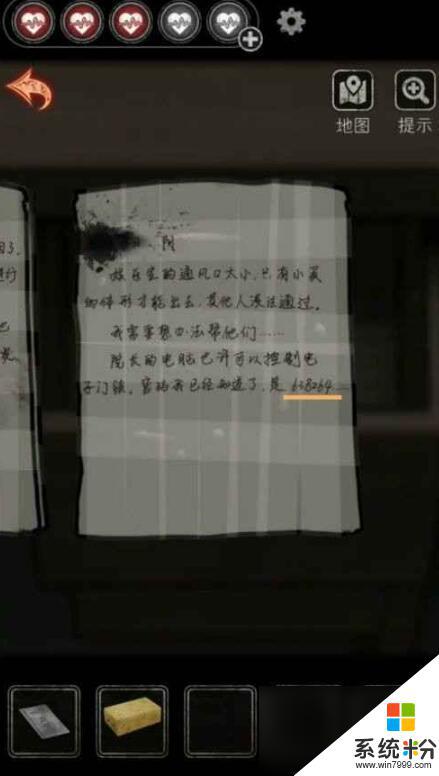 地图 提示
阴
娱乐室的通风口太小，只有小英
的体形才能出去，其他人没法通过。
我需要想办法帮他们……
院长的电脑也许可以控制电
子门锁，密码我已经知道了，是 638264
系统粉
www.win7999.com